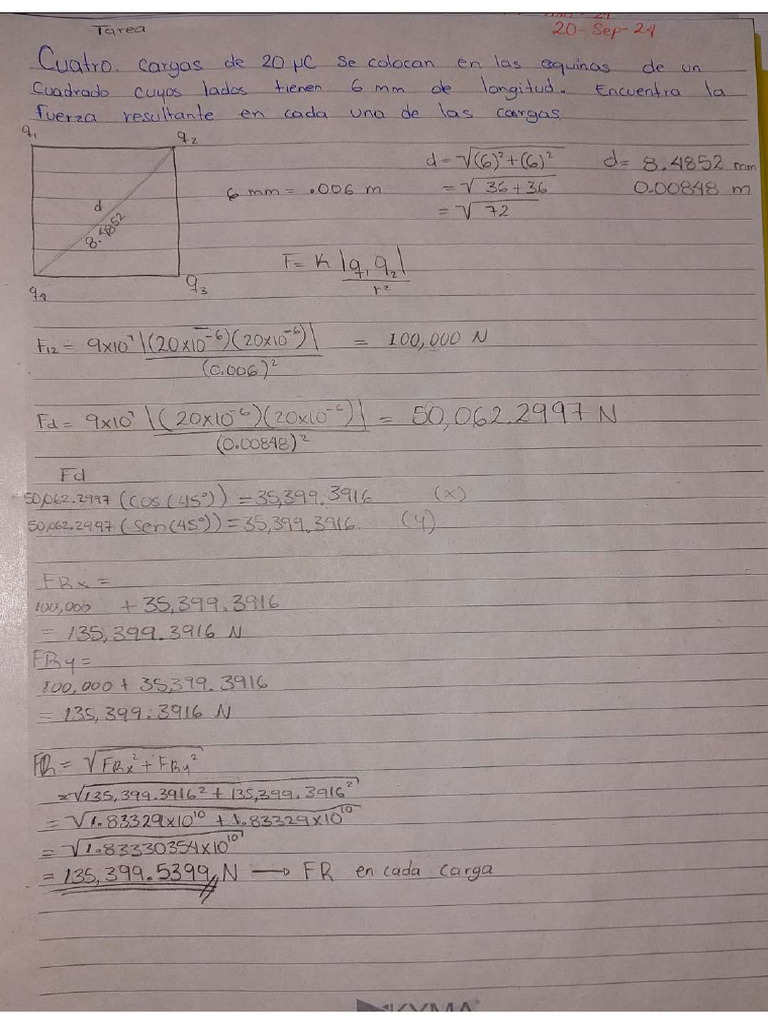 Tarea
20-Sep-24
Cuatro. cargas de 20 μC se colocan en las equinas de un
Cuadrado cuyos lados tienen 6 mm de longitud. Encuentra la
fuerza resultante en cada una de las cargas
q₁ q₂
d=√(6)²+(6)² d= 8.4852 mm
6 mm = .006 m =√36+36 0.00848 m
d =√72
8.4852
F= K |q₁ q₂|
r²
q₄ q₃
F₁₂ = 9x10⁹ |(20x10⁻⁶)(20x10⁻⁶)| = 100,000 N
(0.006)²
Fd = 9x10⁹ |(20x10⁻⁶)(20x10⁻⁶)| = 50,062.2997 N
(0.00848)²
Fd
50,062.2997 (cos(45°)) = 35,399.3916 (x)
50,062.2997 (sen(45°)) = 35,399.3916. (y)
FRx =
100,000 + 35,399.3916
= 135,399.3916 N
FRy =
100,000 + 35,399.3916
= 135,399.3916 N
FR = √FRx²+FRy²
=√135,399.3916² + 135,399.3916²
=√1.83329x10¹⁰ + 1.83329x10¹⁰
=√1.83330354x10¹⁰
= 135,399.5399 N → FR en cada carga
KYMA